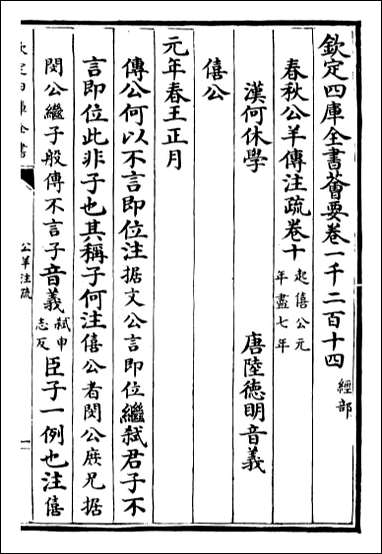 欽定四庫全書薈要卷一千二百十四 經部
春秋公羊傳注疏卷十 起僖公元年盡七年
漢何休學 唐陸德明音義
僖公
元年春王正月
傳公何以不言即位注据文公言即位繼弑君子不
言即位此非子也其稱子何注僖公者閔公庶兄据
閔公繼子般傳不言子音義弑申志反臣子一例也注僖
欽定四庫全書
公羊注疏
一